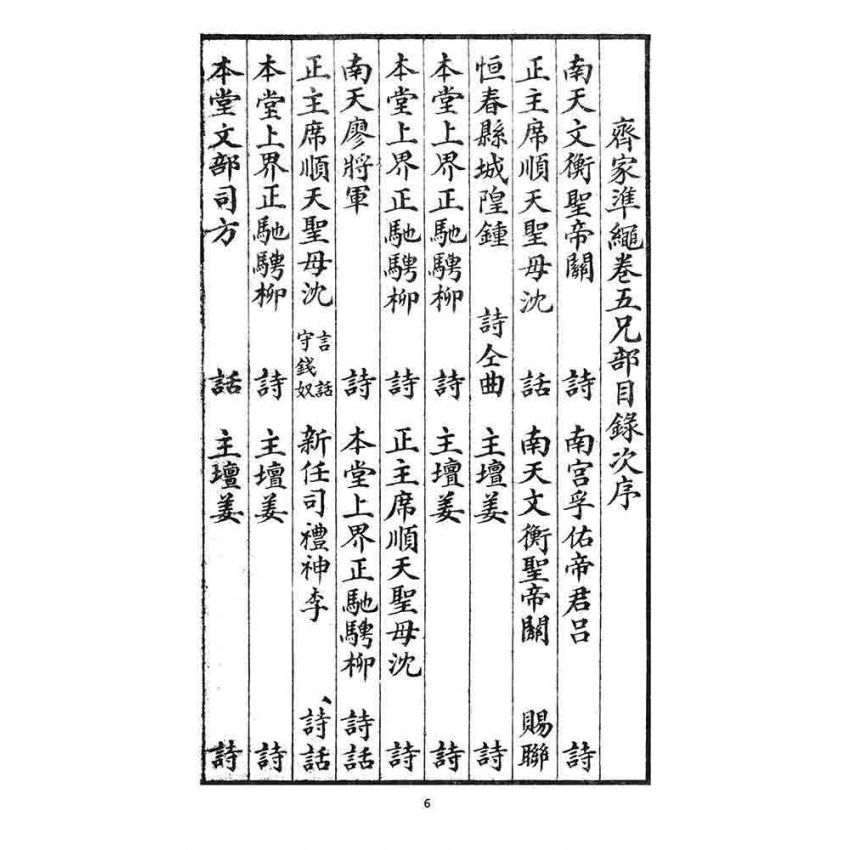 齊家準繩卷五兄部目錄次序
南天文衡聖帝關 詩 南宮孚佑帝君呂 詩
正主席順天聖母沈 話 南天文衡聖帝關 賜聯
恒春縣城隍鍾 詩仝曲 主壇姜 詩
本堂上界正馳騁柳 詩 主壇姜 詩
本堂上界正馳騁柳 詩 正主席順天聖母沈 詩
南天廖將軍 詩 本堂上界正馳騁柳 詩話
正主席順天聖母沈 言話守錢奴 新任司禮神李 、詩話
本堂上界正馳騁柳 詩 主壇姜 詩
本堂文部司方 話 主壇姜 詩
6